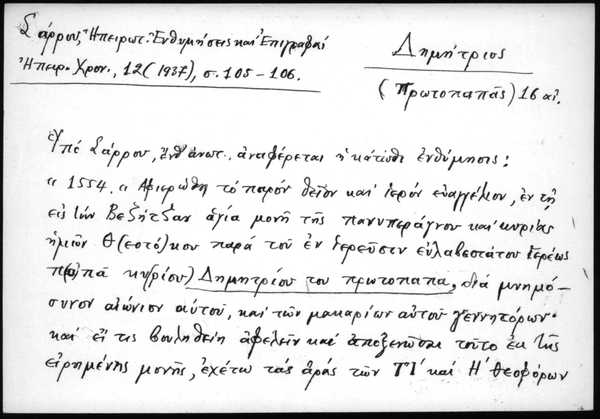 Σάρρου, Ἠπειρωτ. Ἐνθυμήσεις καὶ Ἐπιγραφαί
Ἠπειρ. Χρον., 12 (1937), σ. 105-106.
Δημήτριος
(Πρωτοπαπᾶς) 16 αἰ.
Ὑπὸ Σάρρου, ἔνθ' ἀνωτ., ἀναφέρεται ἡ κάτωθι ἐνθύμησις:
« 1554. « Ἀφιερώθη τὸ παρὸν θεῖον καὶ ἱερὸν εὐαγγέλιον, ἐν τῇ
εἰς τὴν Βεζήτζαν ἁγία μονῇ τῆς πανυπεράγνου καὶ κυρίας
ἡμῶν Θ(εοτό)κου παρὰ τοῦ ἐν ἱερεῦσιν εὐλαβεστάτου ἱερέως
π(α)πᾶ κυ(ρίου) Δημητρίου του πρωτοπαπα, διὰ μνημό-
συνον αἰώνιον αὐτοῦ, καὶ τῶν μακαρίων αὐτοῦ γεννητόρων·
καὶ εἴ τις βουληθείη ἀφελεῖν καὶ ἀποξενῶσαι τοῦτο ἐκ τῆς
εἰρημένης μονῆς, ἐχέτω τὰς ἀρὰς τῶν ΤΙ΄ καὶ Η΄ θεοφόρων